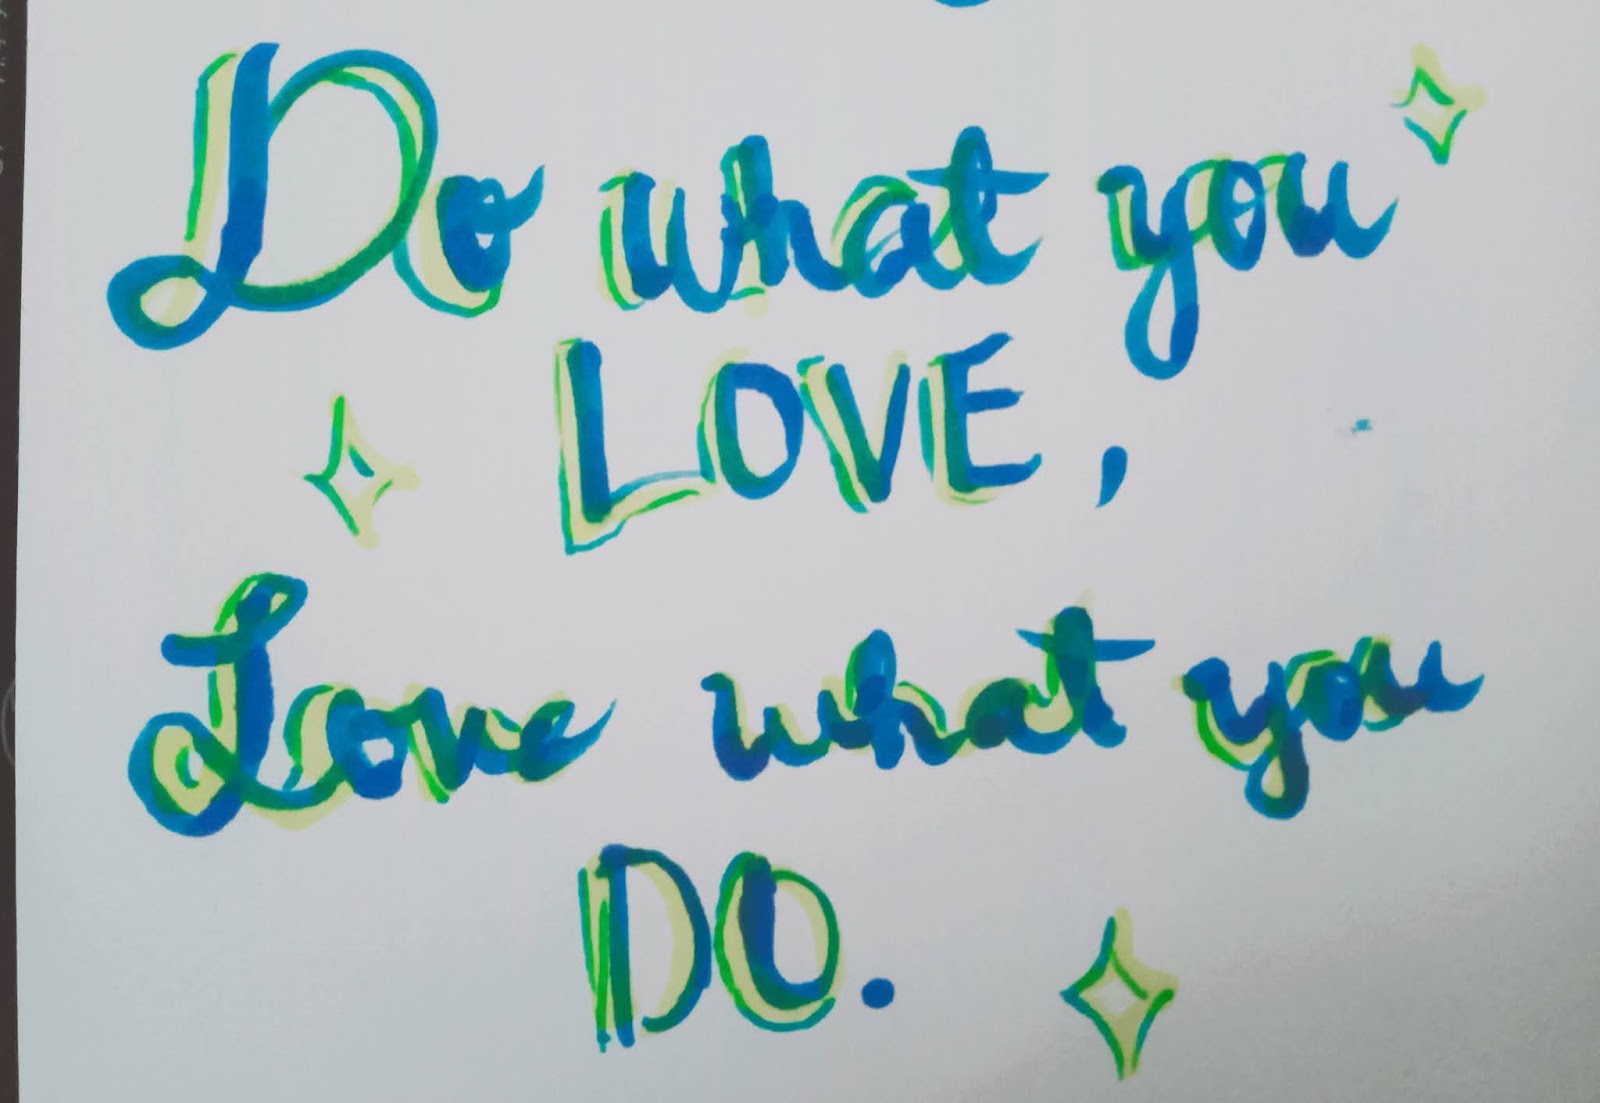 Do what you
LOVE,
Love what you
DO.